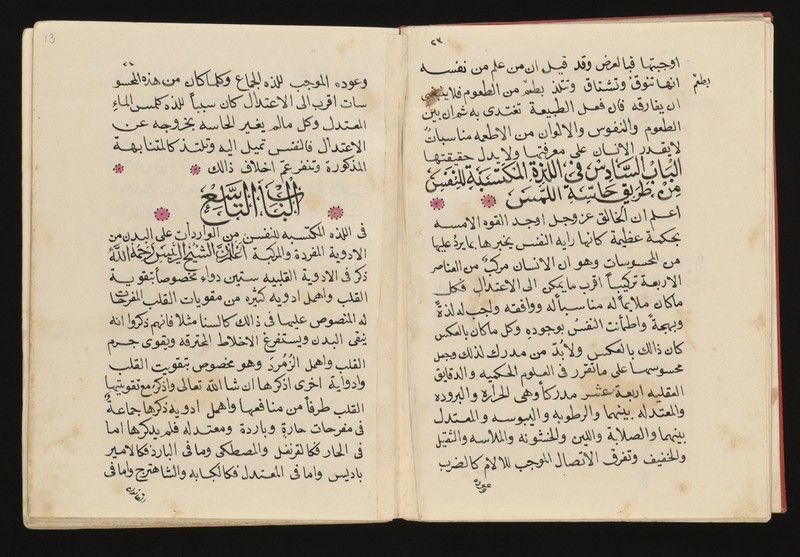 ٢٣
اوجبتها فيالعرض وقد قيل ان من علم من نفسه
انها تتوق وتشتاق وتلذ بطعم من الطعوم فلاينبغى
بطعم
ان يفارقه فان فعل الطبيعة تغتدى به ثم ان بين
الطعوم والنفوس والالوان من الاطعمه مناسبات
لايقدر الانسان على معرفتها ولايدل حقيقتها
الباب السادس فى اللذة المكتسبة للنفس
من طريق حاسة اللمس
اعلم ان الخالق عز وجل اوجد القوه الامسه
بحكمة عظيمة كانها رايه النفس يخبرها بمايرد عليها
من المحسوسات وهو ان الانسان مركب من العناصر
الاربعة تركيباً اقرب مايمكن الى الاعتدال فكل
ماكان ملايماً له مناسباً له ووافقه واجب له لذةً
وبهجةً واطمأنت النفس بوجوده وكل ماكان بالعكس
كان ذالك بالعكس ولابد من مدرك لذلك وجعل
محسوسها على ماتقرر فى العلوم الحكميه والدقايق
العقليه اربعة عشر مدركاً وهى الحرارة والبروده
والمعتدله بينهما والرطوبه واليبوسه والمعتدل
بينهما والصلابة واللين والخشونه والملاسه والثقيل
والخفيف وتفرق الاتصال الموجب للالام كالضرب
وعوده
13
وعوده الموجب للذه الجماع وكلماكان من هذه المحسو
سات اقرب الى الاعتدال كان سبباً للذه كلمس الماء
المعتدل وكل مالم يغير الحاسه بخروجه عن
الاعتدال فالنفس تميل اليه وتلتذ كالمتنابهة
المذكورة وتنفر عم اخلاف ذالك
الباب التاسع
فى اللذه المكتسبه للنفس من الواردات على البدن من
الادوية المفردة والمركبة اعلم ان الشيخ الرئيس رحمه الله
ذكر فى الادوية القلبيه ستين دواء مخصوصاً بتقوية
القلب واهمل ادويه كثيره من مقويات القلب المفرحات
له المنصوص عليها فى ذالك كالسنا مثلا فانهم ذكروا انه
ينقى البدن ويستفرغ الاخلاط المحترقه ويقوى جرم
القلب واهمل الزمرد وهو مخصوص بتقويت القلب
وادواية اخرى اذكرها ان شا الله تعالى واذكر مع تقويتها
القلب طرفاً من منافعها واهمل ادويه ذكرها جماعة
فى مفرحات حارة وباردة ومعتدله فلم يذكرها اما
فى الحار فكالقرنفل والمصطكى وما فى البارد فكالامير
باديس واما فى المعتدل فكالكجابه والشاهترج واما فى
القانون